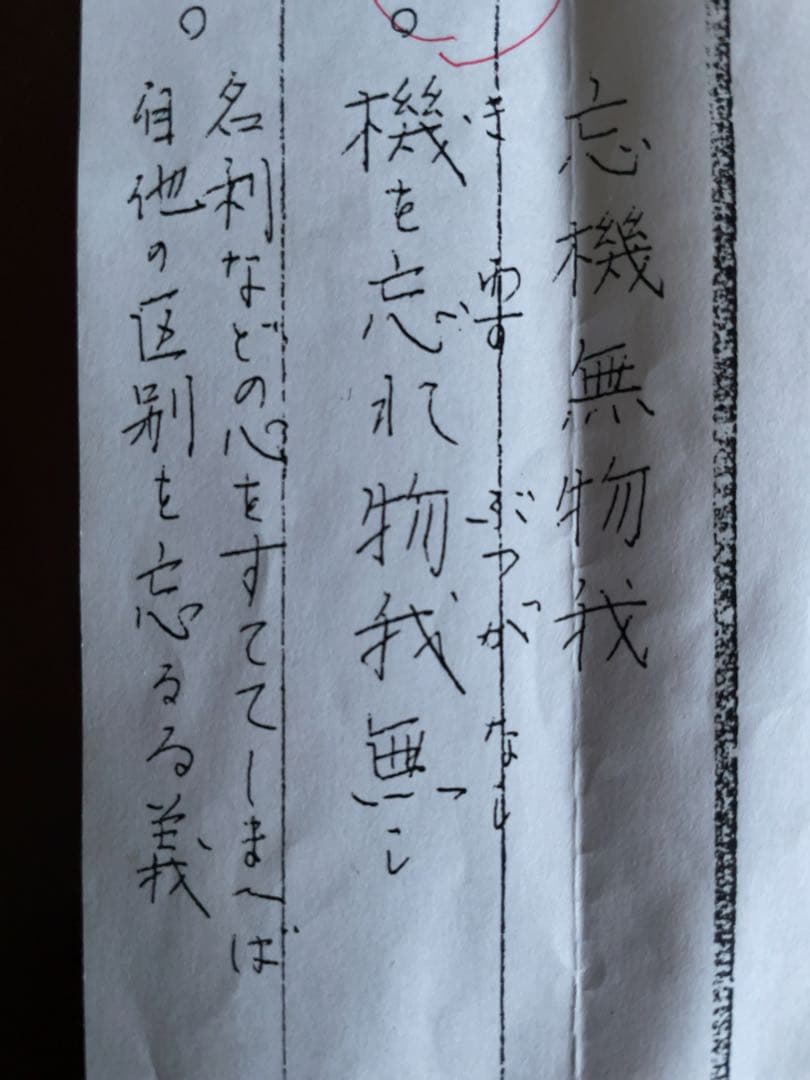 忘機無物我
き わす ぶつが なし
○機を忘れ物我無し
○名利などの心をすててしまへば
自他の区別を忘るる義